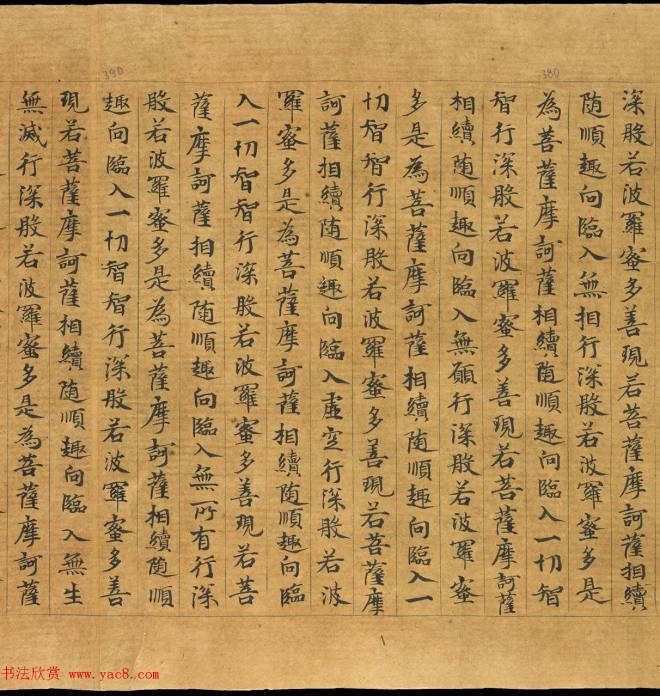 380
深般若波羅蜜多善現若菩薩摩訶薩相續
随順趣向臨入無相行深般若波羅蜜多是
為菩薩摩訶薩相續随順趣向臨入一切智
智行深般若波羅蜜多善現若菩薩摩訶薩
相續随順趣向臨入無願行深般若波羅蜜
多是為菩薩摩訶薩相續随順趣向臨入一
切智智行深般若波羅蜜多善現若菩薩摩
訶薩相續随順趣向臨入虛空行深般若波
羅蜜多是為菩薩摩訶薩相續随順趣向臨
入一切智智行深般若波羅蜜多善現若菩
薩摩訶薩相續随順趣向臨入無所有行深
般若波羅蜜多是為菩薩摩訶薩相續随順
390
趣向臨入一切智智行深般若波羅蜜多善
現若菩薩摩訶薩相續随順趣向臨入無生
無滅行深般若波羅蜜多是為菩薩摩訶薩
书法欣赏 www.yac8.com